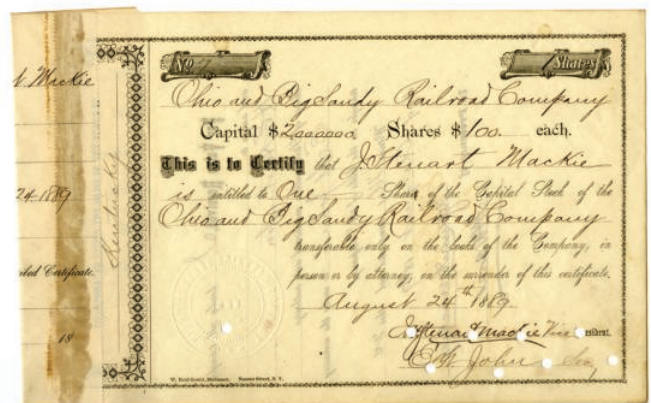 N. Mackie
24-1889
ibed Certificate.
18
Kentucky
No. 7
1 Shares
Ohio and Big Sandy Railroad Company
Capital $2000000. Shares $100. each.
This is to Certify that J. Stenart Mackie
is entitled to One Share of the Capital Stock of the
Ohio and Big Sandy Railroad Company
transferable only on the books of the Company, in
person or by attorney, on the surrender of this certificate.
August 24th 1889
J. Stenart Mackie Vice resident.
E. W. John Sec,
Nassau Street, N.Y.